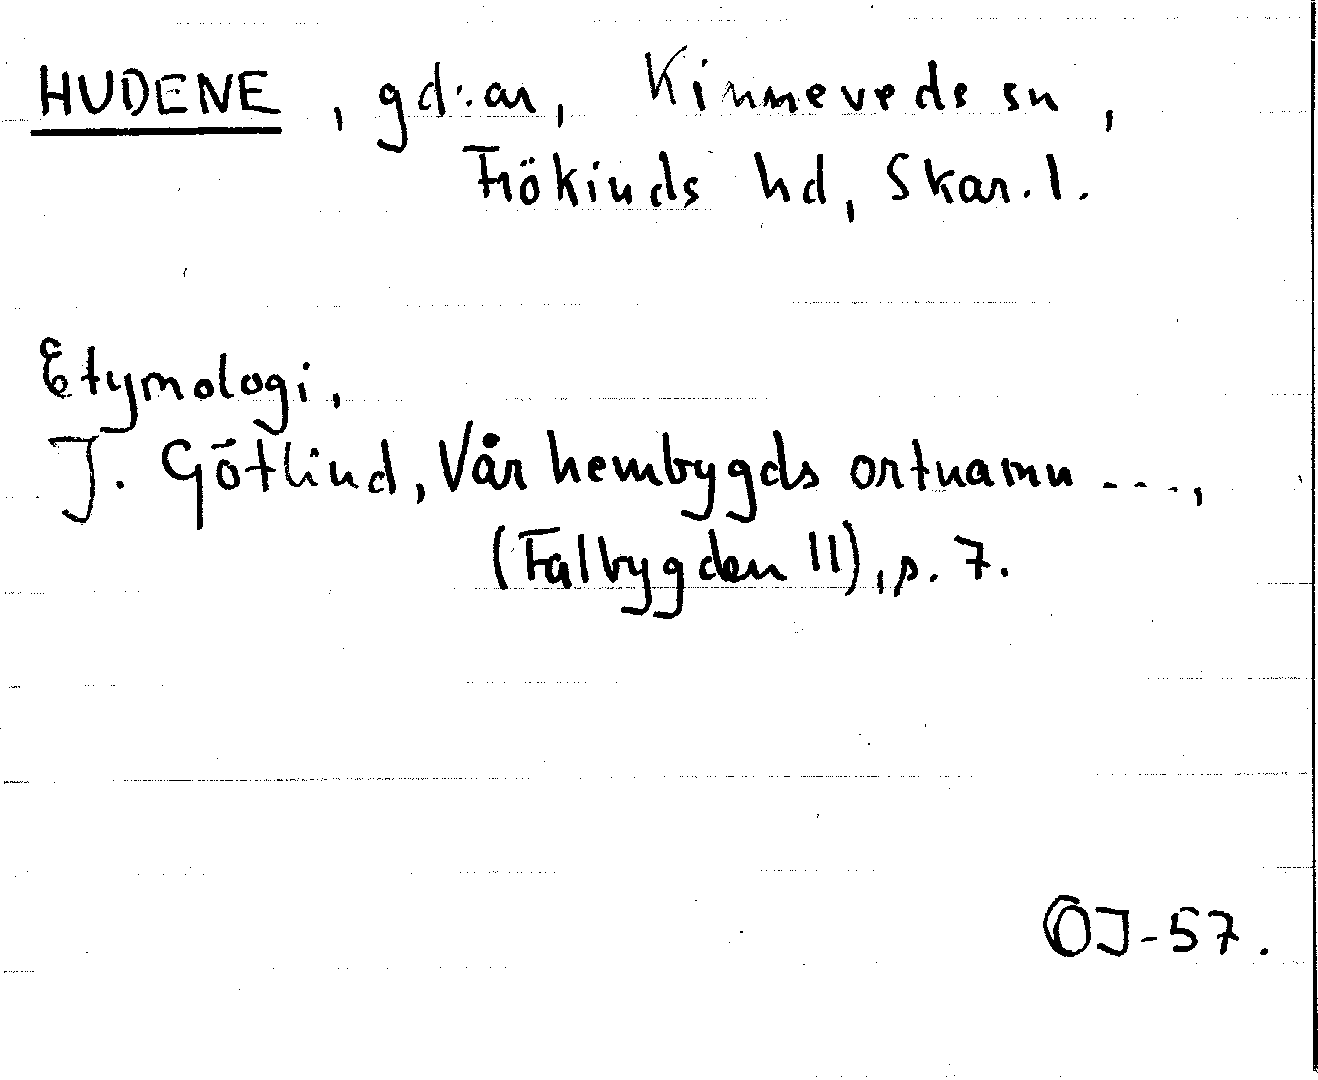 HUDENE, gd:ar, Kinneveds sn,
Frökinds hd, Skar. l.
Etymologi,
J. Götlind, Vår hembygds ortnamn ...,
(Falbygden 11), p. 7.
OJ-57.